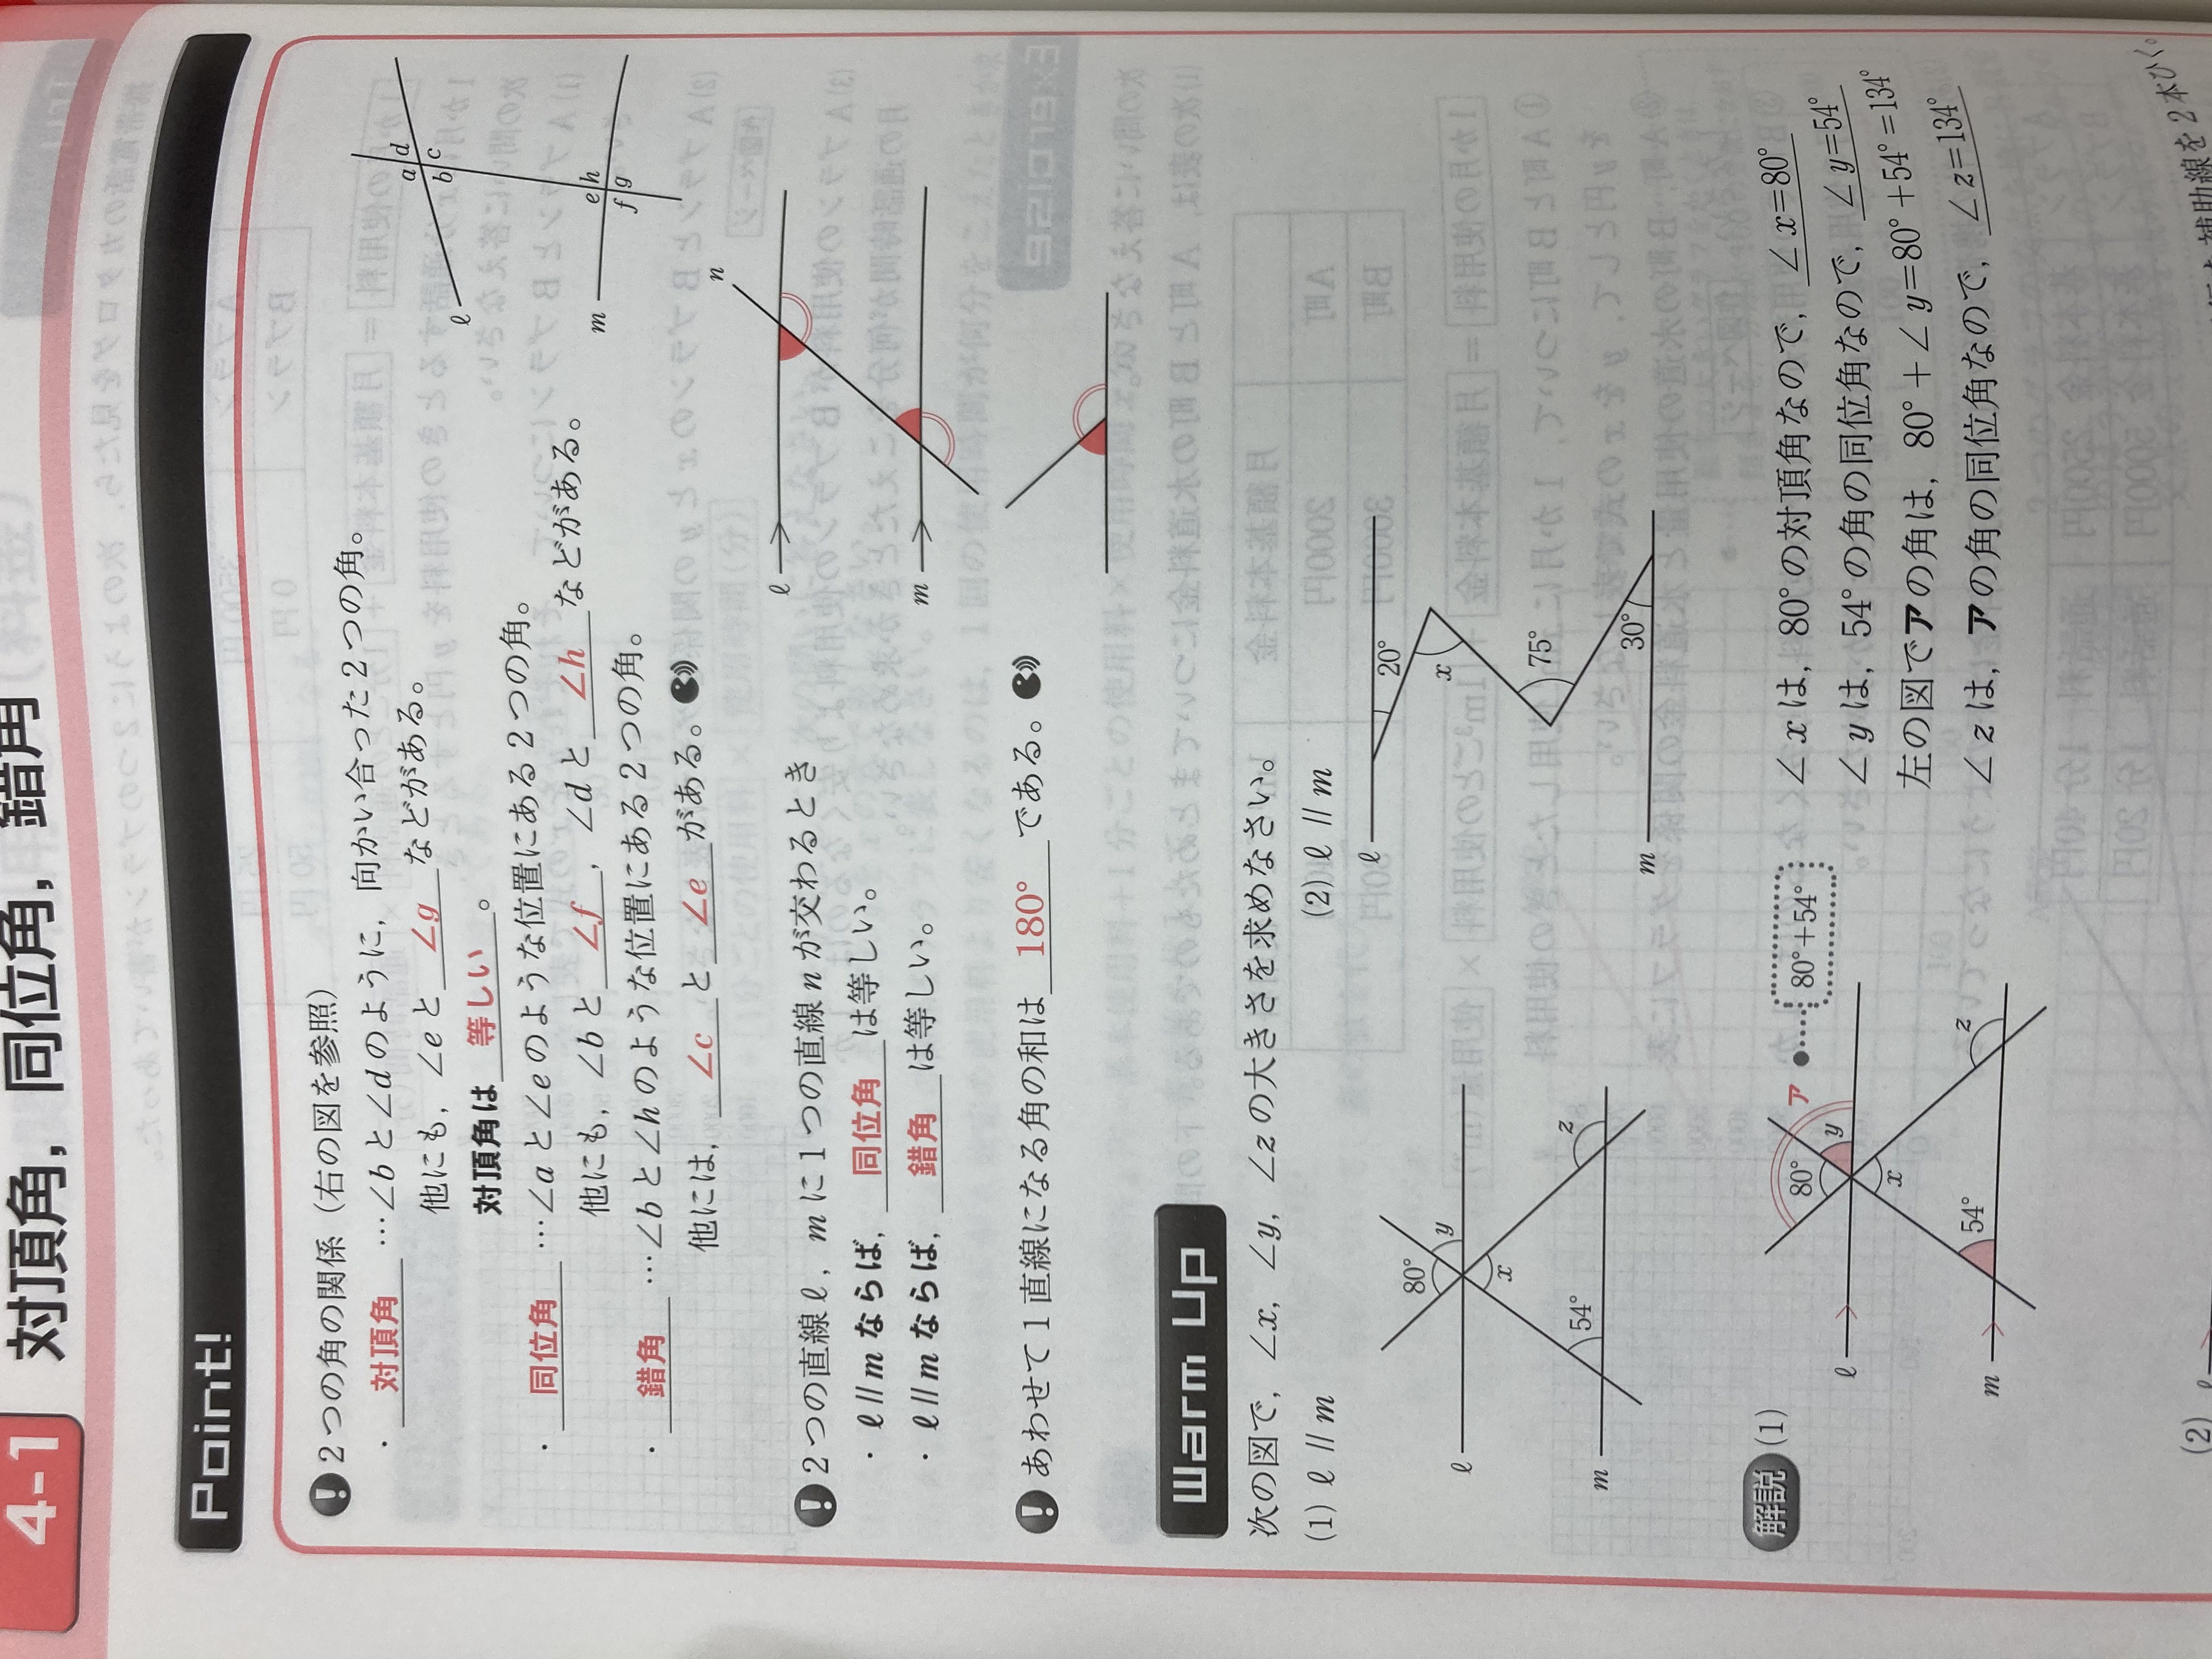 4-1 対頂角，同位角，錯角
Point!
❗2つの角の関係（右の図を参照）
・対頂角…∠bと∠dのように，向かい合った2つの角。
他にも，∠eと∠gなどがある。
対頂角は等しい。
・同位角…∠aと∠eのような位置にある2つの角。
他にも，∠bと∠f，∠dと∠hなどがある。
・錯角…∠bと∠hのような位置にある2つの角。
他には，∠cと∠eがある。
ℓ
a
d
b
c
m
e
h
f
g
❗2つの直線ℓ，mに1つの直線nが交わるとき
・ℓ//mならば，同位角は等しい。
・ℓ//mならば，錯角は等しい。
n
ℓ
m
❗あわせて1直線になる角の和は180°である。
Warm Up
次の図で，∠x，∠y，∠zの大きさを求めなさい。
(1) ℓ//m
80°
y
ℓ
x
z
54°
m
(2) ℓ//m
ℓ
20°
x
75°
30°
m
解説
(1)
ア
80°+54°
80°
y
ℓ
x
z
54°
m
∠xは，80°の対頂角なので，∠x=80°
∠yは，54°の角の同位角なので，∠y=54°
左の図でアの角は，80°+∠y=80°+54°=134°
∠zは，アの角の同位角なので，∠z=134°
(2)
ℓ
補助線を2本ひく。